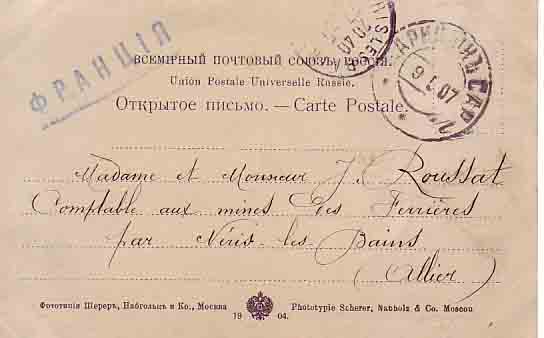 ФРАНЦІЯ
ВСЕМІРНЫЙ ПОЧТОВЫЙ СОЮЗЪ, РОССІЯ.
Union Postale Universelle Russie.
Открытое письмо. — Carte Postale.
9 5 07
САР
Madame et Monsieur J. Roussat
Comptable aux mines des Ferrières
par Néris-les-Bains
(Allier)
Фототипія Шереръ, Набгольцъ и Ко., Москва
Phototypie Scherer, Nabholz & Co. Moscou
19 04.